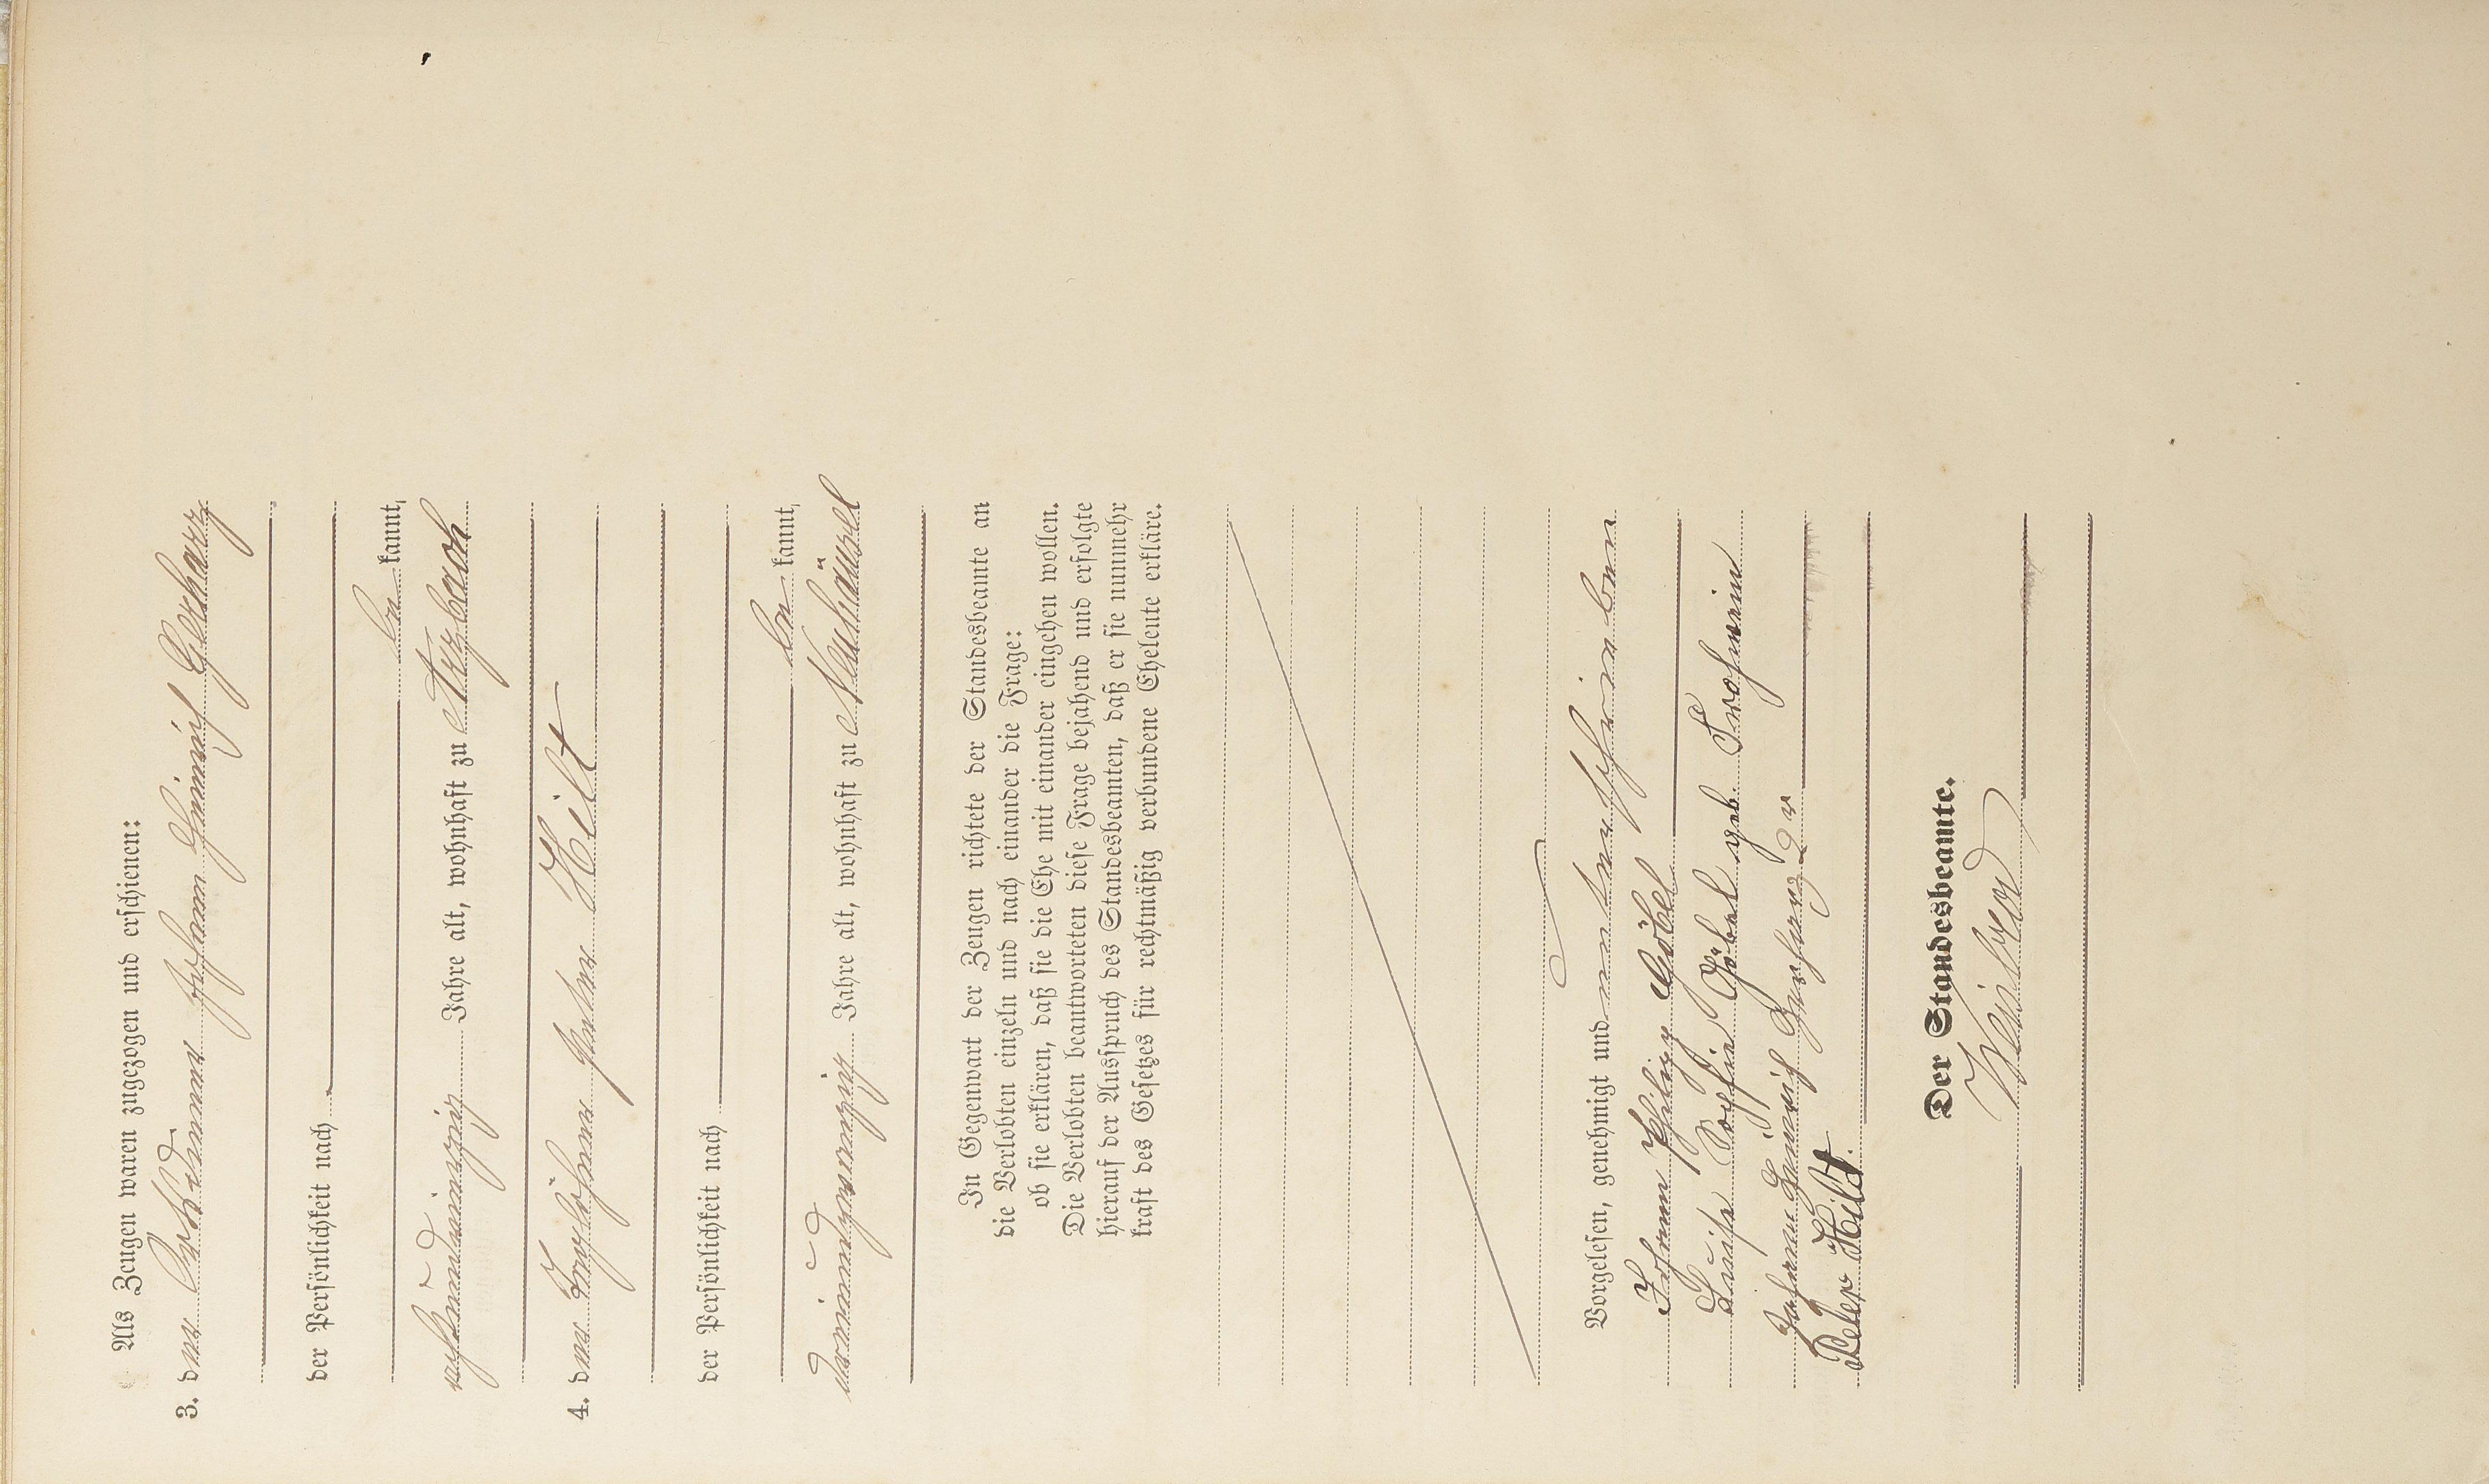 Als Zeugen waren zugezogen und erschienen:
3. der Johann Heinrich Gerharz
der Persönlichkeit nach
be kannt,
achtundvierzig Jahre alt, wohnhaft zu Arzbach
4. der Taglöhner Peter Hilt
der Persönlichkeit nach
be kannt,
dreiundzwanzig Jahre alt, wohnhaft zu Neuhäusel
In Gegenwart der Zeugen richtete der Standesbeamte an
die Verlobten einzeln und nach einander die Frage:
ob sie erklären, daß sie die Ehe mit einander eingehen wollen.
Die Verlobten beantworteten diese Frage bejahend und erfolgte
hierauf der Ausspruch des Standesbeamten, daß er sie nunmehr
kraft des Gesetzes für rechtmäßig verbundene Eheleute erkläre.
Vorgelesen, genehmigt und unterschrieben
Johann Philipp Göbel
Luise Sophie Göbel geb. Frohwein
Johann Heinrich Gerharz 2r
Peter Hild.
Der Standesbeamte.